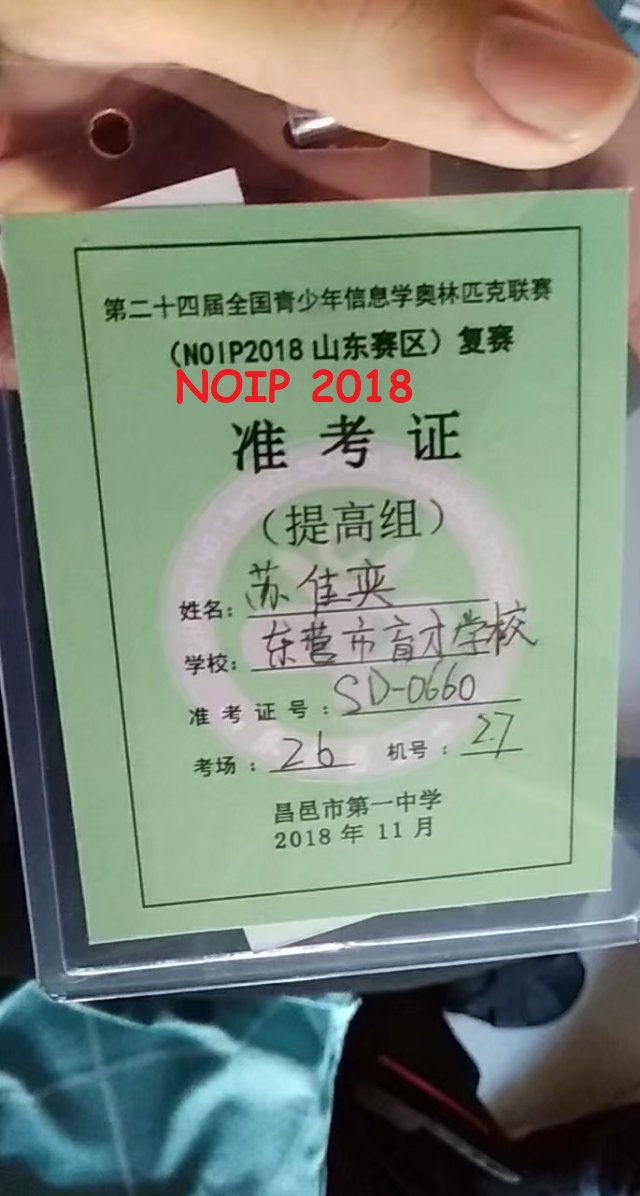 第二十四届全国青少年信息学奥林匹克联赛
（NOIP2018 山东赛区）复赛
NOIP 2018
准考证
（提高组）
姓名：苏佳奕
学校：东营市育才学校
准考证号：SD-0660
考场：26 机号：27
昌邑市第一中学
2018 年 11 月